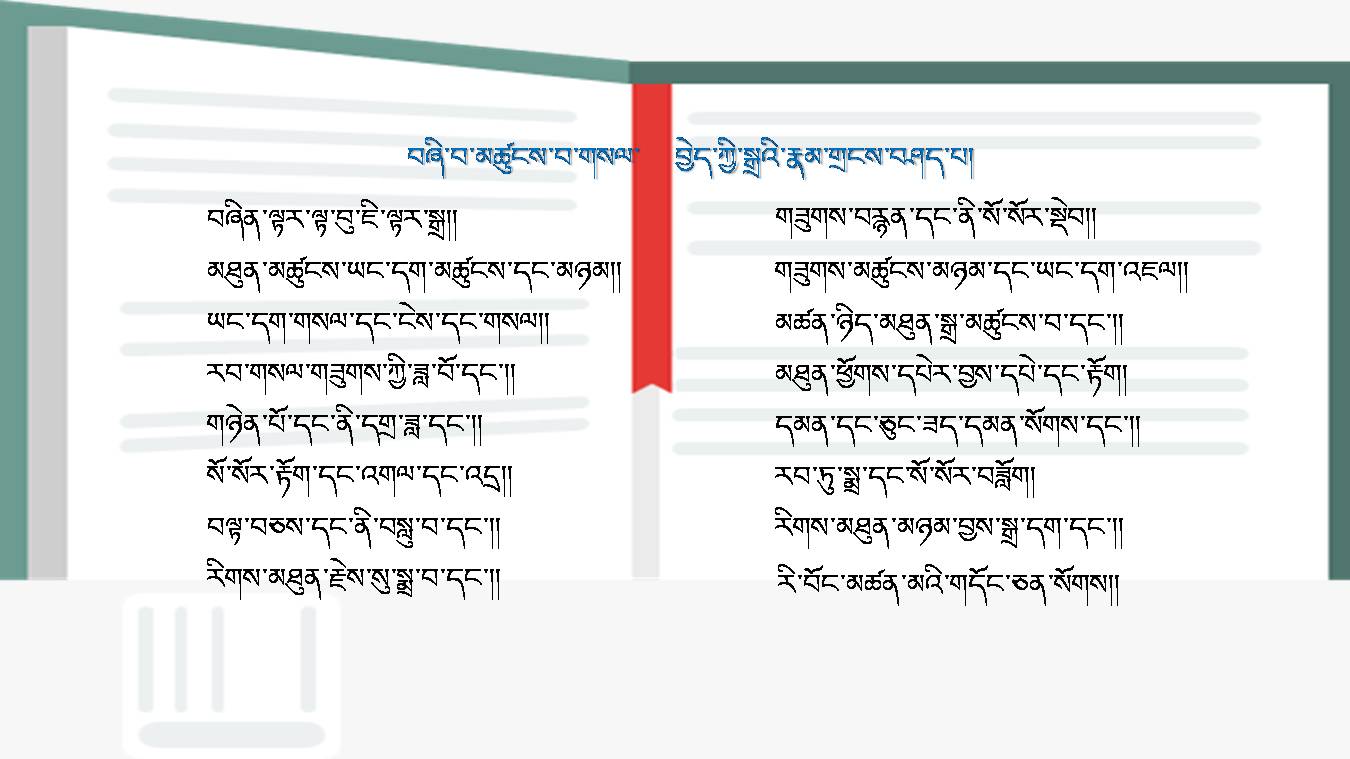 བཞི་བ་མཚུངས་བ་གསལ་ བྱེད་ཀྱི་སྒྲའི་རྣམ་གྲངས་བཤད་པ།
བཞིན་ལྟར་ལྟ་བུ་ཇི་ལྟར་སྒྲ།།
མཐུན་མཚུངས་ཡང་དག་མཚུངས་དང་མཉམ།།
ཡང་དག་གསལ་དང་ངེས་དང་གསལ།།
རབ་གསལ་གཟུགས་ཀྱི་ཟླ་བོ་དང་།།
གཉེན་པོ་དང་ནི་དགྲ་ཟླ་དང་།།
སོ་སོར་རྟོག་དང་འགལ་དང་འདྲ།།
བལྟ་བཅས་དང་ནི་བསླུ་བ་དང་།།
རིགས་མཐུན་རྗེས་སུ་སྨྲ་བ་དང་།།
གཟུགས་བརྙན་དང་ནི་སོ་སོར་སྡེབ།།
གཟུགས་མཚུངས་མཉམ་དང་ཡང་དག་འཇལ།།
མཚན་ཉིད་མཐུན་སྒྲ་མཚུངས་བ་དང་།།
མཐུན་ཕྱོགས་དཔེར་བྱས་དཔེ་དང་རྟོག།
དམན་དང་ཅུང་ཟད་དམན་སོགས་དང་།།
རབ་ཏུ་སྨྲ་དང་སོ་སོར་བཟློག།
རིགས་མཐུན་མཉམ་བྱས་སྒྲ་དག་དང་།།
རི་བོང་མཚན་མའི་གདོང་ཅན་སོགས།།